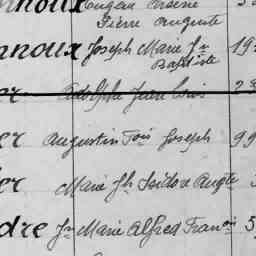 nnoux Eugène Arsène
Pierre Auguste
nnoux Joseph Marie Jn 19
Baptiste
er Adolphe Jean Louis 2
er Augustin Fois Joseph 99
er Marie Jh Isidore Augte
dre Jn Marie Alfred Franis 5